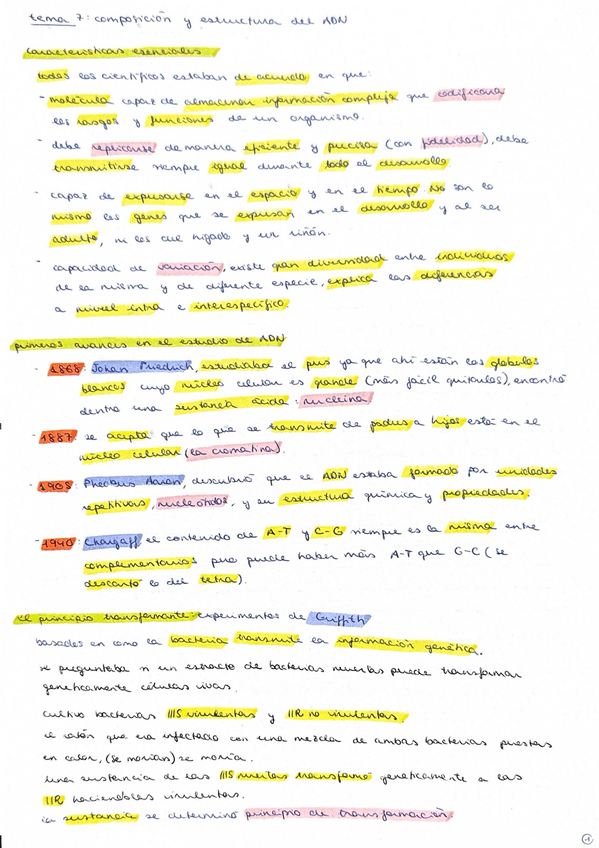 tema 7: composición y estructura del ADN
características esenciales
todos los científicos estaban de acuerdo en que:
- molécula capaz de almacenar información compleja que codificara
los rasgos y funciones de un organismo.
- debe replicarse de manera eficiente y precisa (con fidelidad), debe
transmitirse siempre igual durante todo el desarrollo
- capaz de expresarse en el espacio y en el tiempo. No son lo
mismo los genes que se expresan en el desarrollo y al ser
adulto, ni los del hígado y un riñón.
- capacidad de variación, existe gran diversidad entre individuos
de la misma y de diferente especie, explica las diferencias
a nivel intra e interespecífico.
primeros avances en el estudio de ADN
- 1868: Johan Friedrich, estudiaba el pus ya que ahí están los glóbulos
blancos cuyo núcleo celular es grande (más fácil quitarlos), encontró
dentro una sustancia ácida: nucleína
- 1887: se acepta que lo que se transmite de padres a hijos está en el
núcleo celular (la cromatina).
- 1908: Phoebus Aaron, descubrió que el ADN estaba formado por unidades
repetitivas, nucleótidos, y su estructura química y propiedades.
- 1940: Chargaff, el contenido de A-T y C-G siempre es la misma entre
complementarios pero puede haber más A-T que G-C (se
descartó lo del tetra).
el principio transformante: experimentos de Griffith
basados en como la bacteria transmite la información genética.
se preguntaba si un extracto de bacterias muertas puede transformar
geneticamente células vivas.
cultivo bacterias IIIS virulentas y IIR no virulentas.
el ratón que era infectado con una mezcla de ambas bacterias puestas
en calor, (se morían) se moría.
una sustancia de las IIIS muertas transformó geneticamente a las
IIR haciendolas virulentas.
la sustancia se determinó principio de transformación.
1